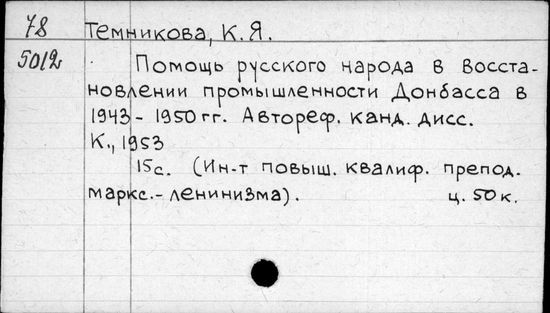 78
Темникова, К.Я.
5012
Помощь русского народа в восста-
новлении промышленности Донбасса в
1943 - 1950 гг. Автореф. канд. дисс.
К., 1953
15с. (Ин-т повыш. квалиф. препод.
маркс.- ленинизма). ц. 50 к.